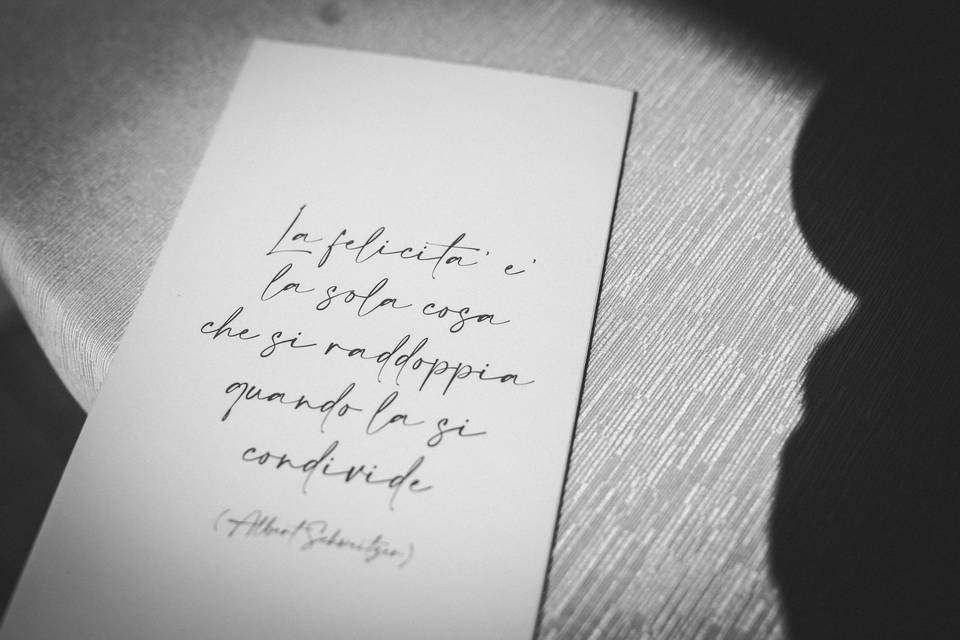 La felicita' e'
la sola cosa
che si raddoppia
quando la si
condivide
(Albert Schweitzer)